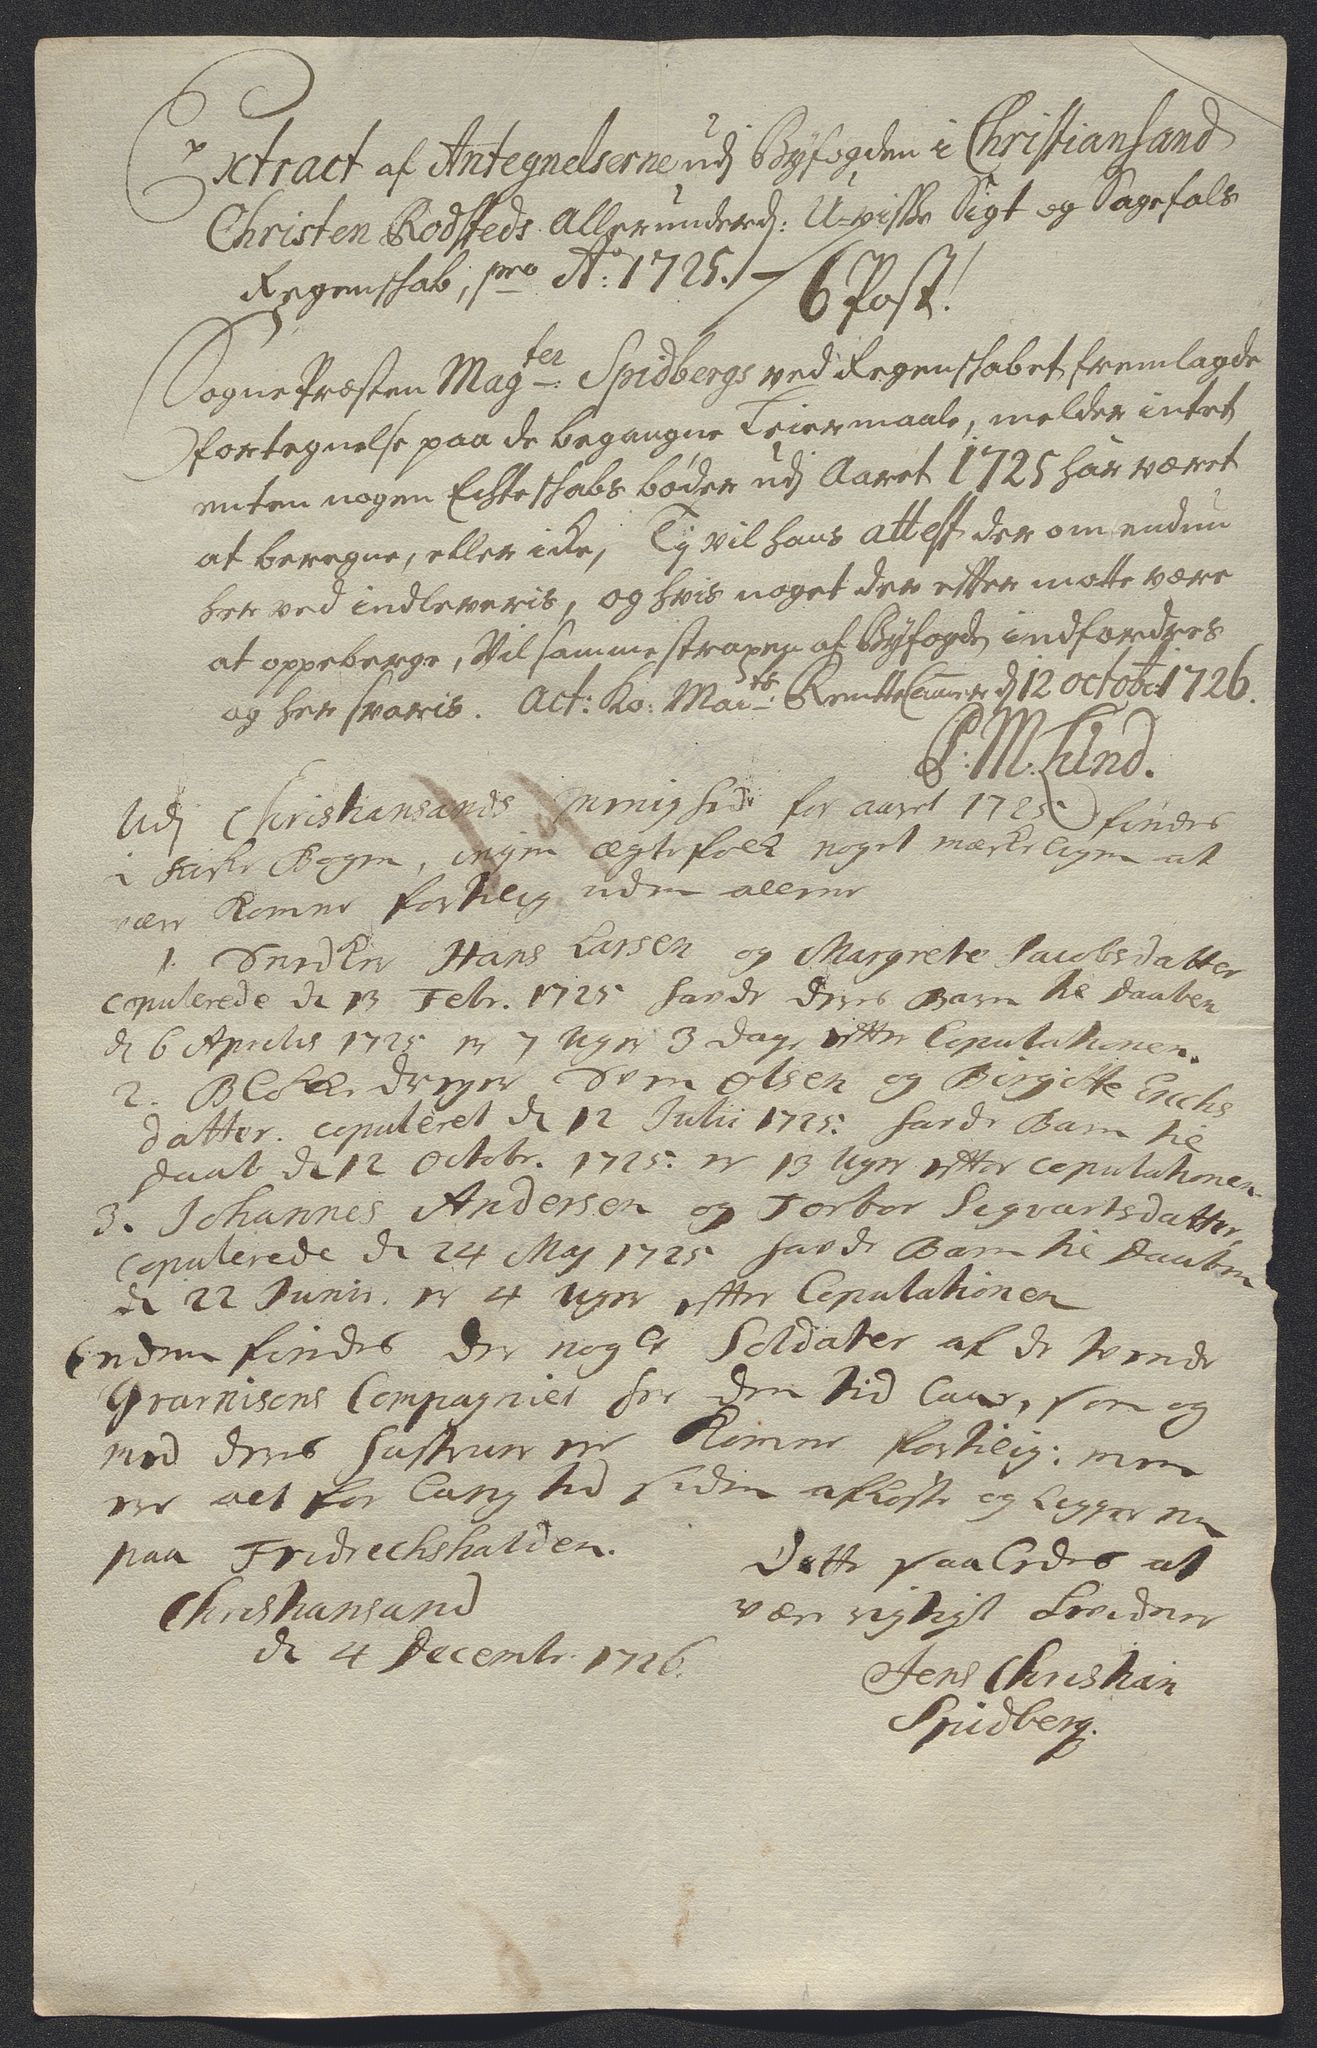 Extract af Antegnelserne udj Byfogden i Christiansand
Christen Rodsteds Allerunderd: U-visse Sigt og Sagefals
Regenskab, pro Ao: 1725. 6 Post!
Sogne Præsten Magter: Spidbergs ved Regenskabet fremlagde
fortegnelse paa de begangne Leiermaale, melder intet
enten nogen Echteskabs bøder udj Aaret 1725 har været
at beregne, eller icke, Ty vil hans attest der om endnu
her ved indleveris, og hvis noget der efter motte være
at oppeberge, Vil samme strapen af Byfogden indfordres
og her svaris. Act: Ko: Maits: Rentte Camer d 12 octobr 1726.
P: M: Lund.
Udj Christiansands Meenighed for aaret 1725 findes
i Kirke Bogen, ingen ægtefolk noget mærkeligen at
være komne fortilig uden allene
1. Snedker Hans Larsen og Margrete Jacobsdatter
copulerede d 13 Febr. 1725 havde deres Barn til Daaben
d 6 Aprilis 1725 er 7 Uger 3 dage efter Copulationen.
2. Blokkedreyer Sven Olsen og Birgitte Erichs
datter. copuleret d 12 Julii 1725. havde Barn til
Daab d 12 Octobr. 1725. er 13 Uger efter copulationen
3. Johannes Andersen og Torbor Sigvartsdatter,
copulerede d 24 Maj 1725 havde Barn til Daaben
d 22 Junii. er 4 Uger efter Copulationen
Enden findes der nogle Soldater af de tvende
Guarnisons Compagnier her den tid laae, som og
med deres hustruer ere komne fortilig: men
ere alt for lang tid siden afløste og ligger nu
paa Fridrechshalden.
Dette saaledes at
være rigtigt bevidner
Christiansand
d 4 Decembr. 1726.
Jens Christian
Spidberg.